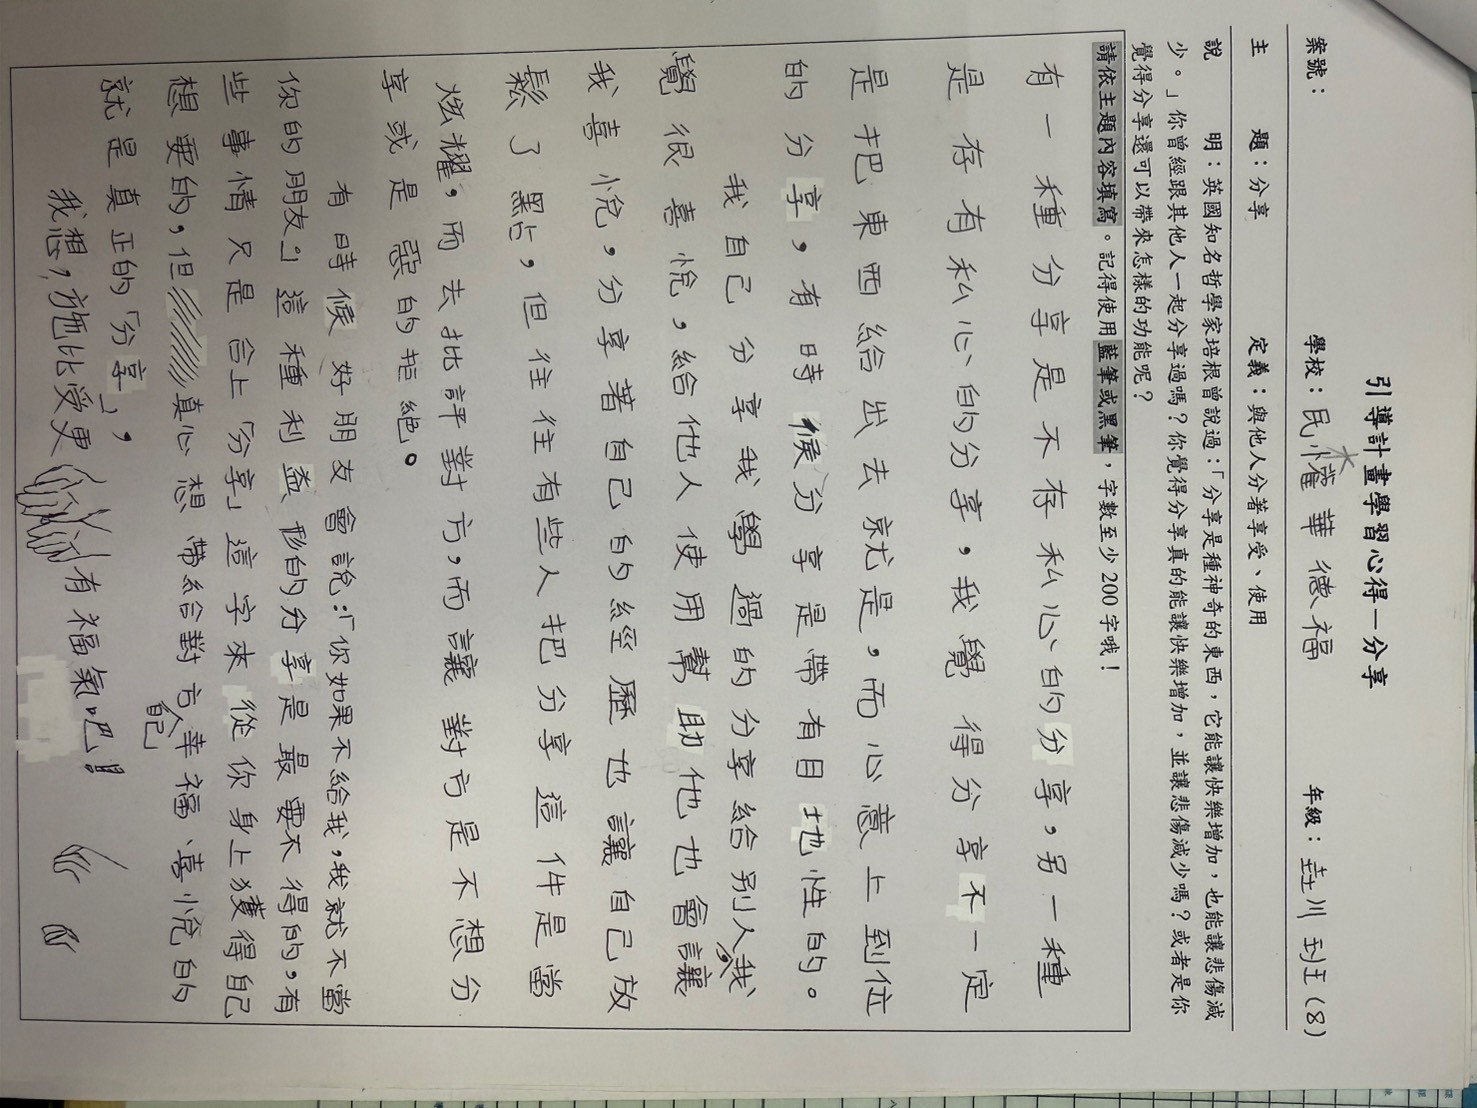 引導計畫學習心得－分享
案號： 學校：民權華德福 年級：壵川班(8)
主題：分享 定義：與他人分著享受、使用
說明：英國知名哲學家培根曾說過：「分享是種神奇的東西，它能讓快樂增加，也能讓悲傷減
少。」你曾經跟其他人一起分享過嗎？你覺得分享真的能讓快樂增加，並讓悲傷減少嗎？或者是你
覺得分享還可以帶來怎樣的功能呢？
請依主題內容填寫。記得使用藍筆或黑筆，字數至少200字哦！
有一種分享是不存私心的分享，另一種
是存有私心的分享，我覺得分享不一定
是把東西給出去就是，而心意上到位
的分享，有時候分享是帶有目地性的。
我自己分享我學過的分享給別人，我
覺很喜悅，給他人使用幫助他也也會讓
我喜悅，分享著自己的經歷也讓自己放
鬆了點，但往往有些人把分享這件是當
炫耀，而去批評對方，而讓對方是不想分
享或是惡的拒絕。
有時候好朋友會說：「你如果不給我，我就不當
你的朋友。」這種利益形的分享是最要不得的，有
些事情只是合上「分享」這字來從你身上獲得自己
想要的，但真心想帶給對方給自己幸福、喜悅的
就是真正的「分享」，
我想，施比受更有福氣吧！！